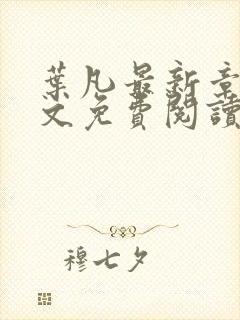 葉凡最新章
文免費閱讀
穆七夕